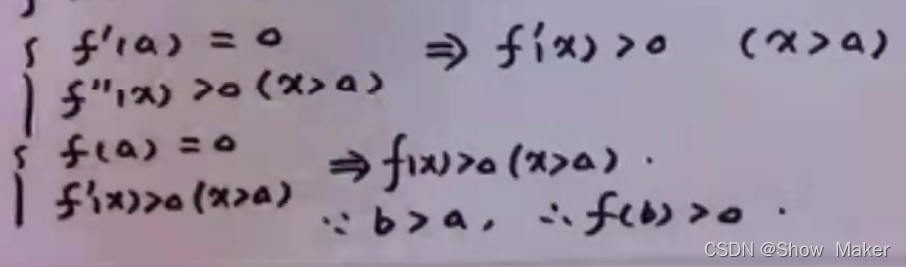 { f'(a) = 0 ⇒ f'(x) > 0 (x > a)
f''(x) > 0 (x > a)
{ f(a) = 0 ⇒ f(x) > 0 (x > a).
f'(x) > 0 (x > a)
∵ b > a, ∴ f(b) > 0.
CSDN @Show_Maker